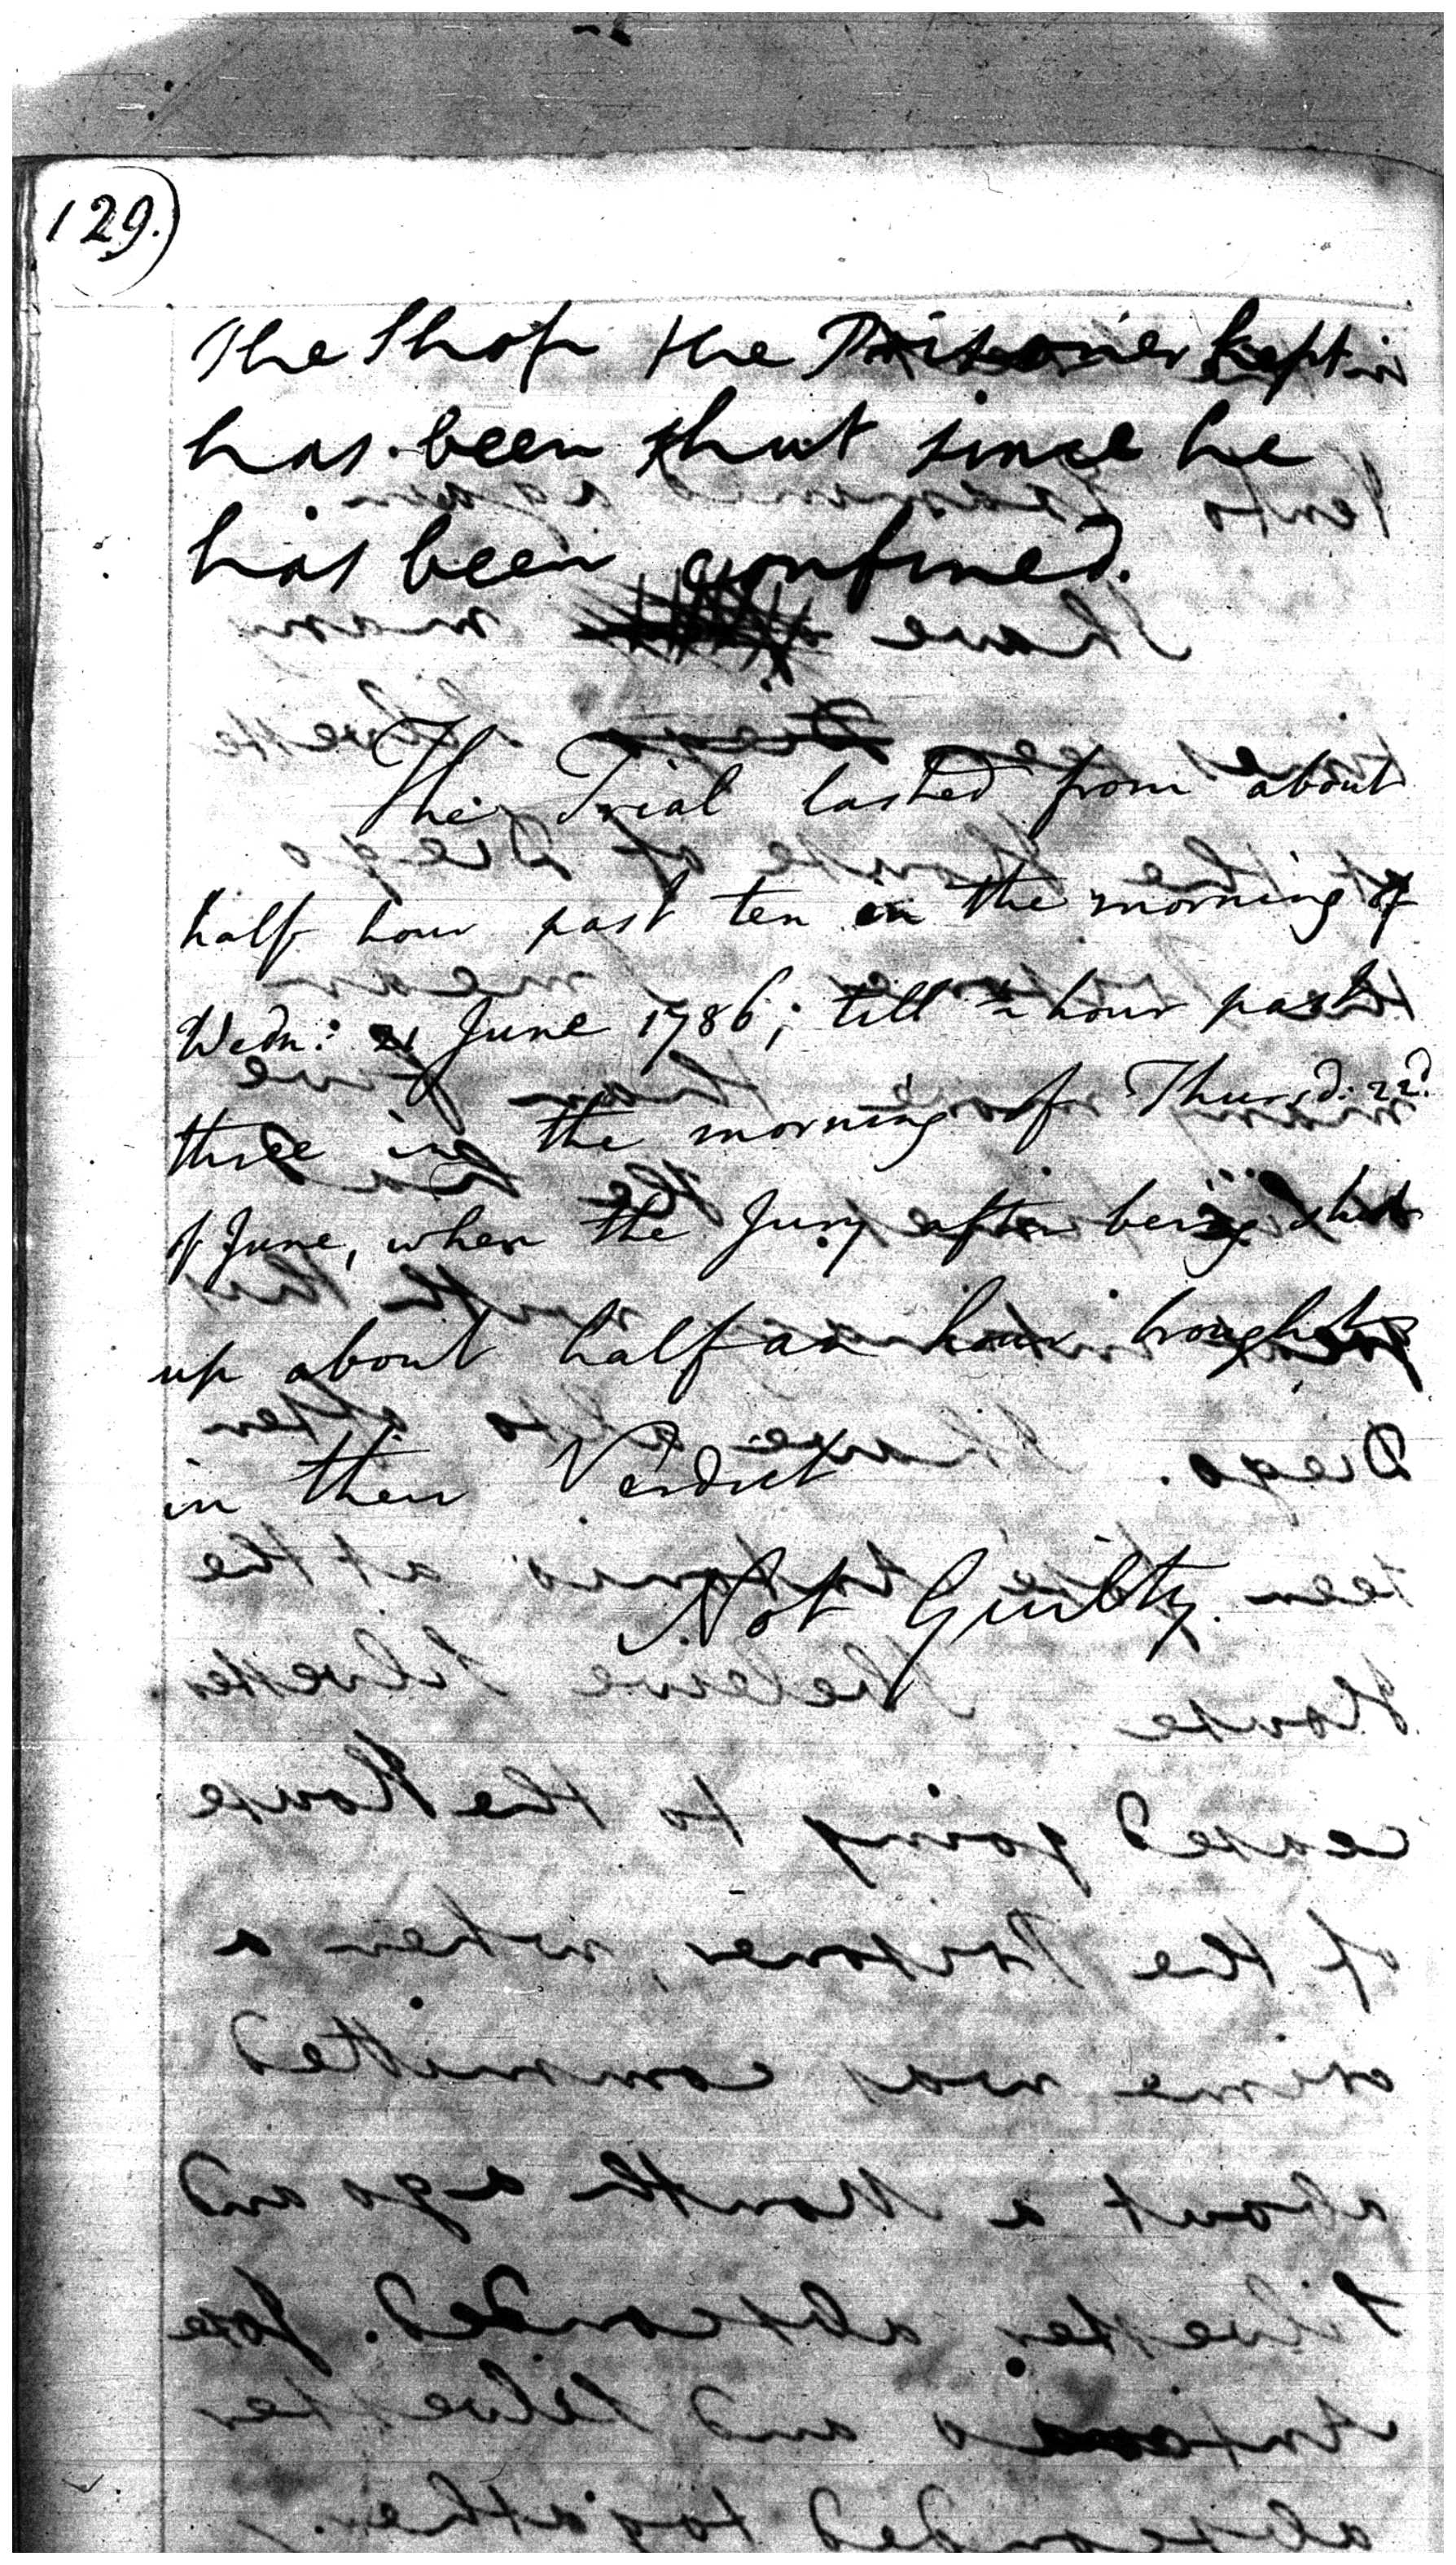 129.
The Shop the Prisoner kept in
has been shut since he
has been confined.
The Trial lasted from about
half hour past ten in the morning of
Wedn: 21 June 1786; till ½ hour past
three in the morning of Thursd: 22d.
of June, when the Jury after being shut
up about half an hour brought
in their Verdict
Not Guilty.